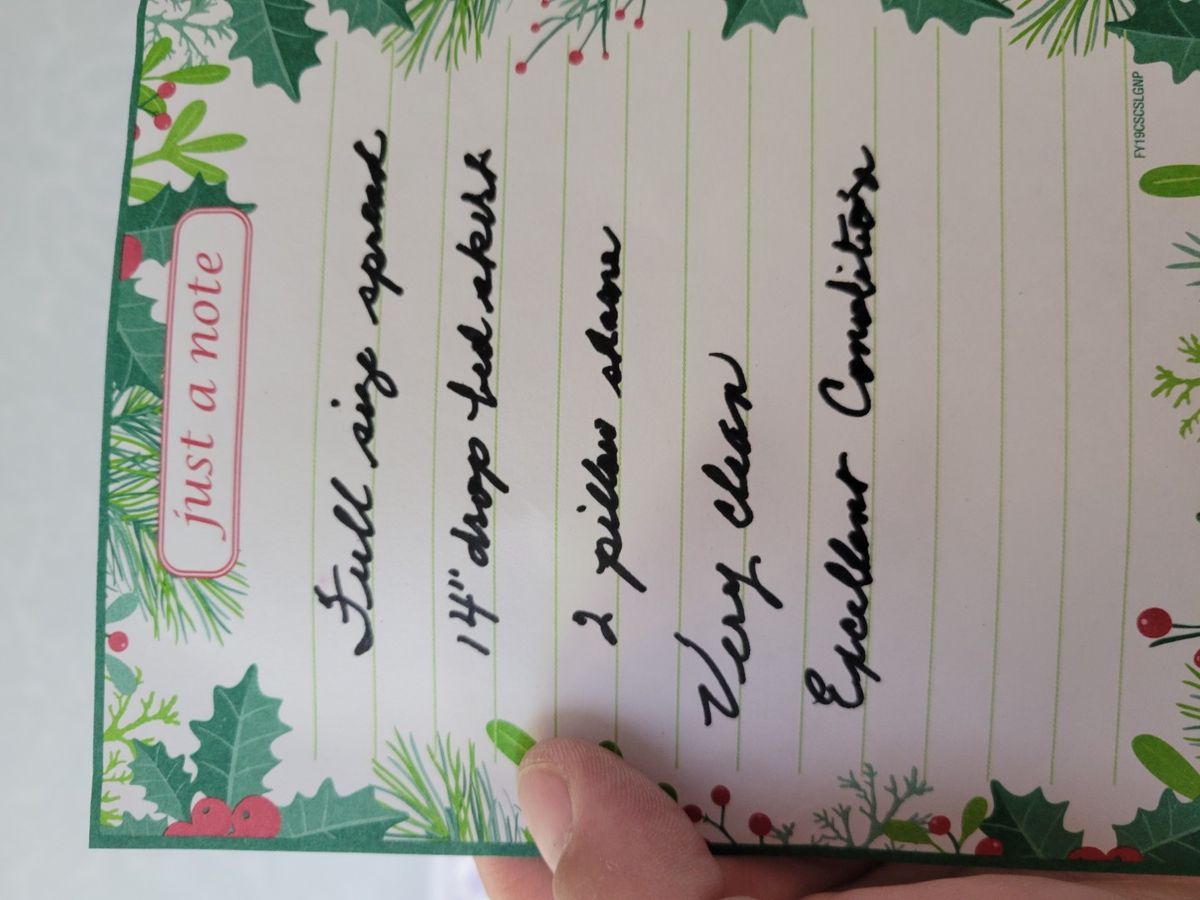 just a note
Full size spread
14" drop bed skirt
2 pillow shams
Very clean
Excellent Condition
FY19CSCSLGNP